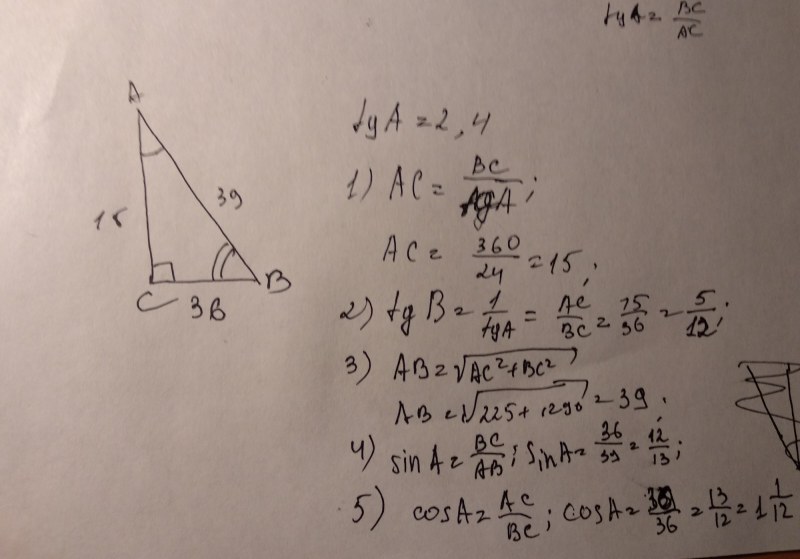 tgA = BC/AC
A
15
39
C
36
B
tgA = 2,4
1) AC = BC/tgA;
AC = 360/24 = 15;
2) tgB = 1/tgA = AC/BC = 15/36 = 5/12;
3) AB = √AC²+BC²
AB = √225+1296 = 39;
4) sinA = BC/AB; sinA = 36/39 = 12/13;
5) cosA = AC/BC; cosA = 39/36 = 13/12 = 1 1/12